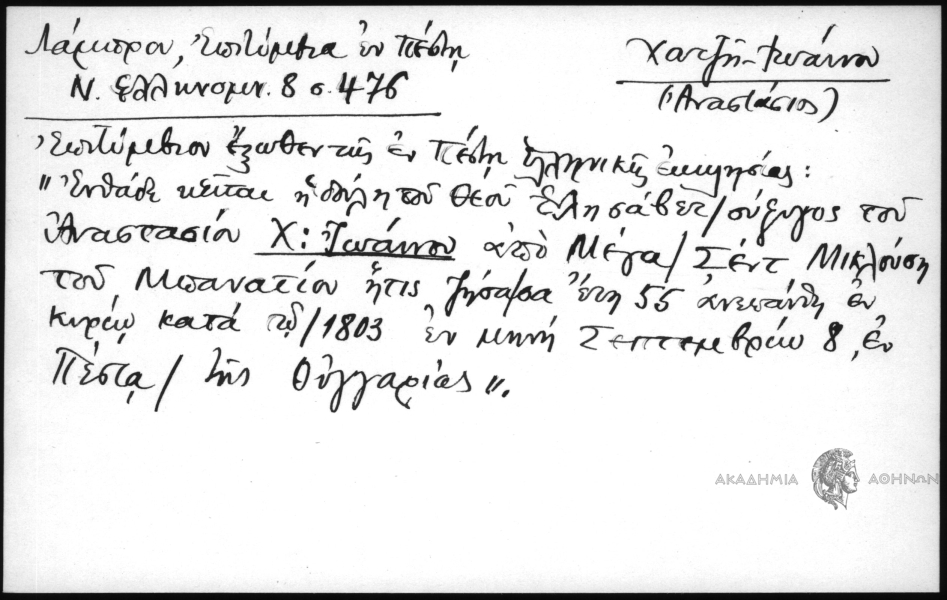 Λάμπρου, Ἐπιτύμβια ἐν Πέστῃ
Ν. Ἑλληνομν. 8 σ. 476
Χατζῆ-Ἰωάννου
(Ἀναστάσιος)
Ἐπιτύμβιον ἔξωθεν τῆς ἐν Πέστῃ Ἑλληνικῆς ἐκκλησίας:
"Ἐνθάδε κεῖται ἡ δούλη τοῦ Θεοῦ Ἐλησάβετ/σύζυγος τοῦ
Ἀναστασίου Χ: Ἰωάννου ἀπὸ Μέγα/Σέντ Μικλούση
τοῦ Μπανατίου ἥτις ζήσασα ἔτη 55 ἀνεπαύθη ἐν
Κυρίῳ κατὰ τῷ/1803 ἐν μηνὴ Σεπτεμβρίῳ 8, ἐν
Πέστᾳ/τῆς Οὐγγαρίας".
ΑΚΑΔΗΜΙΑ ΑΘΗΝΩΝ